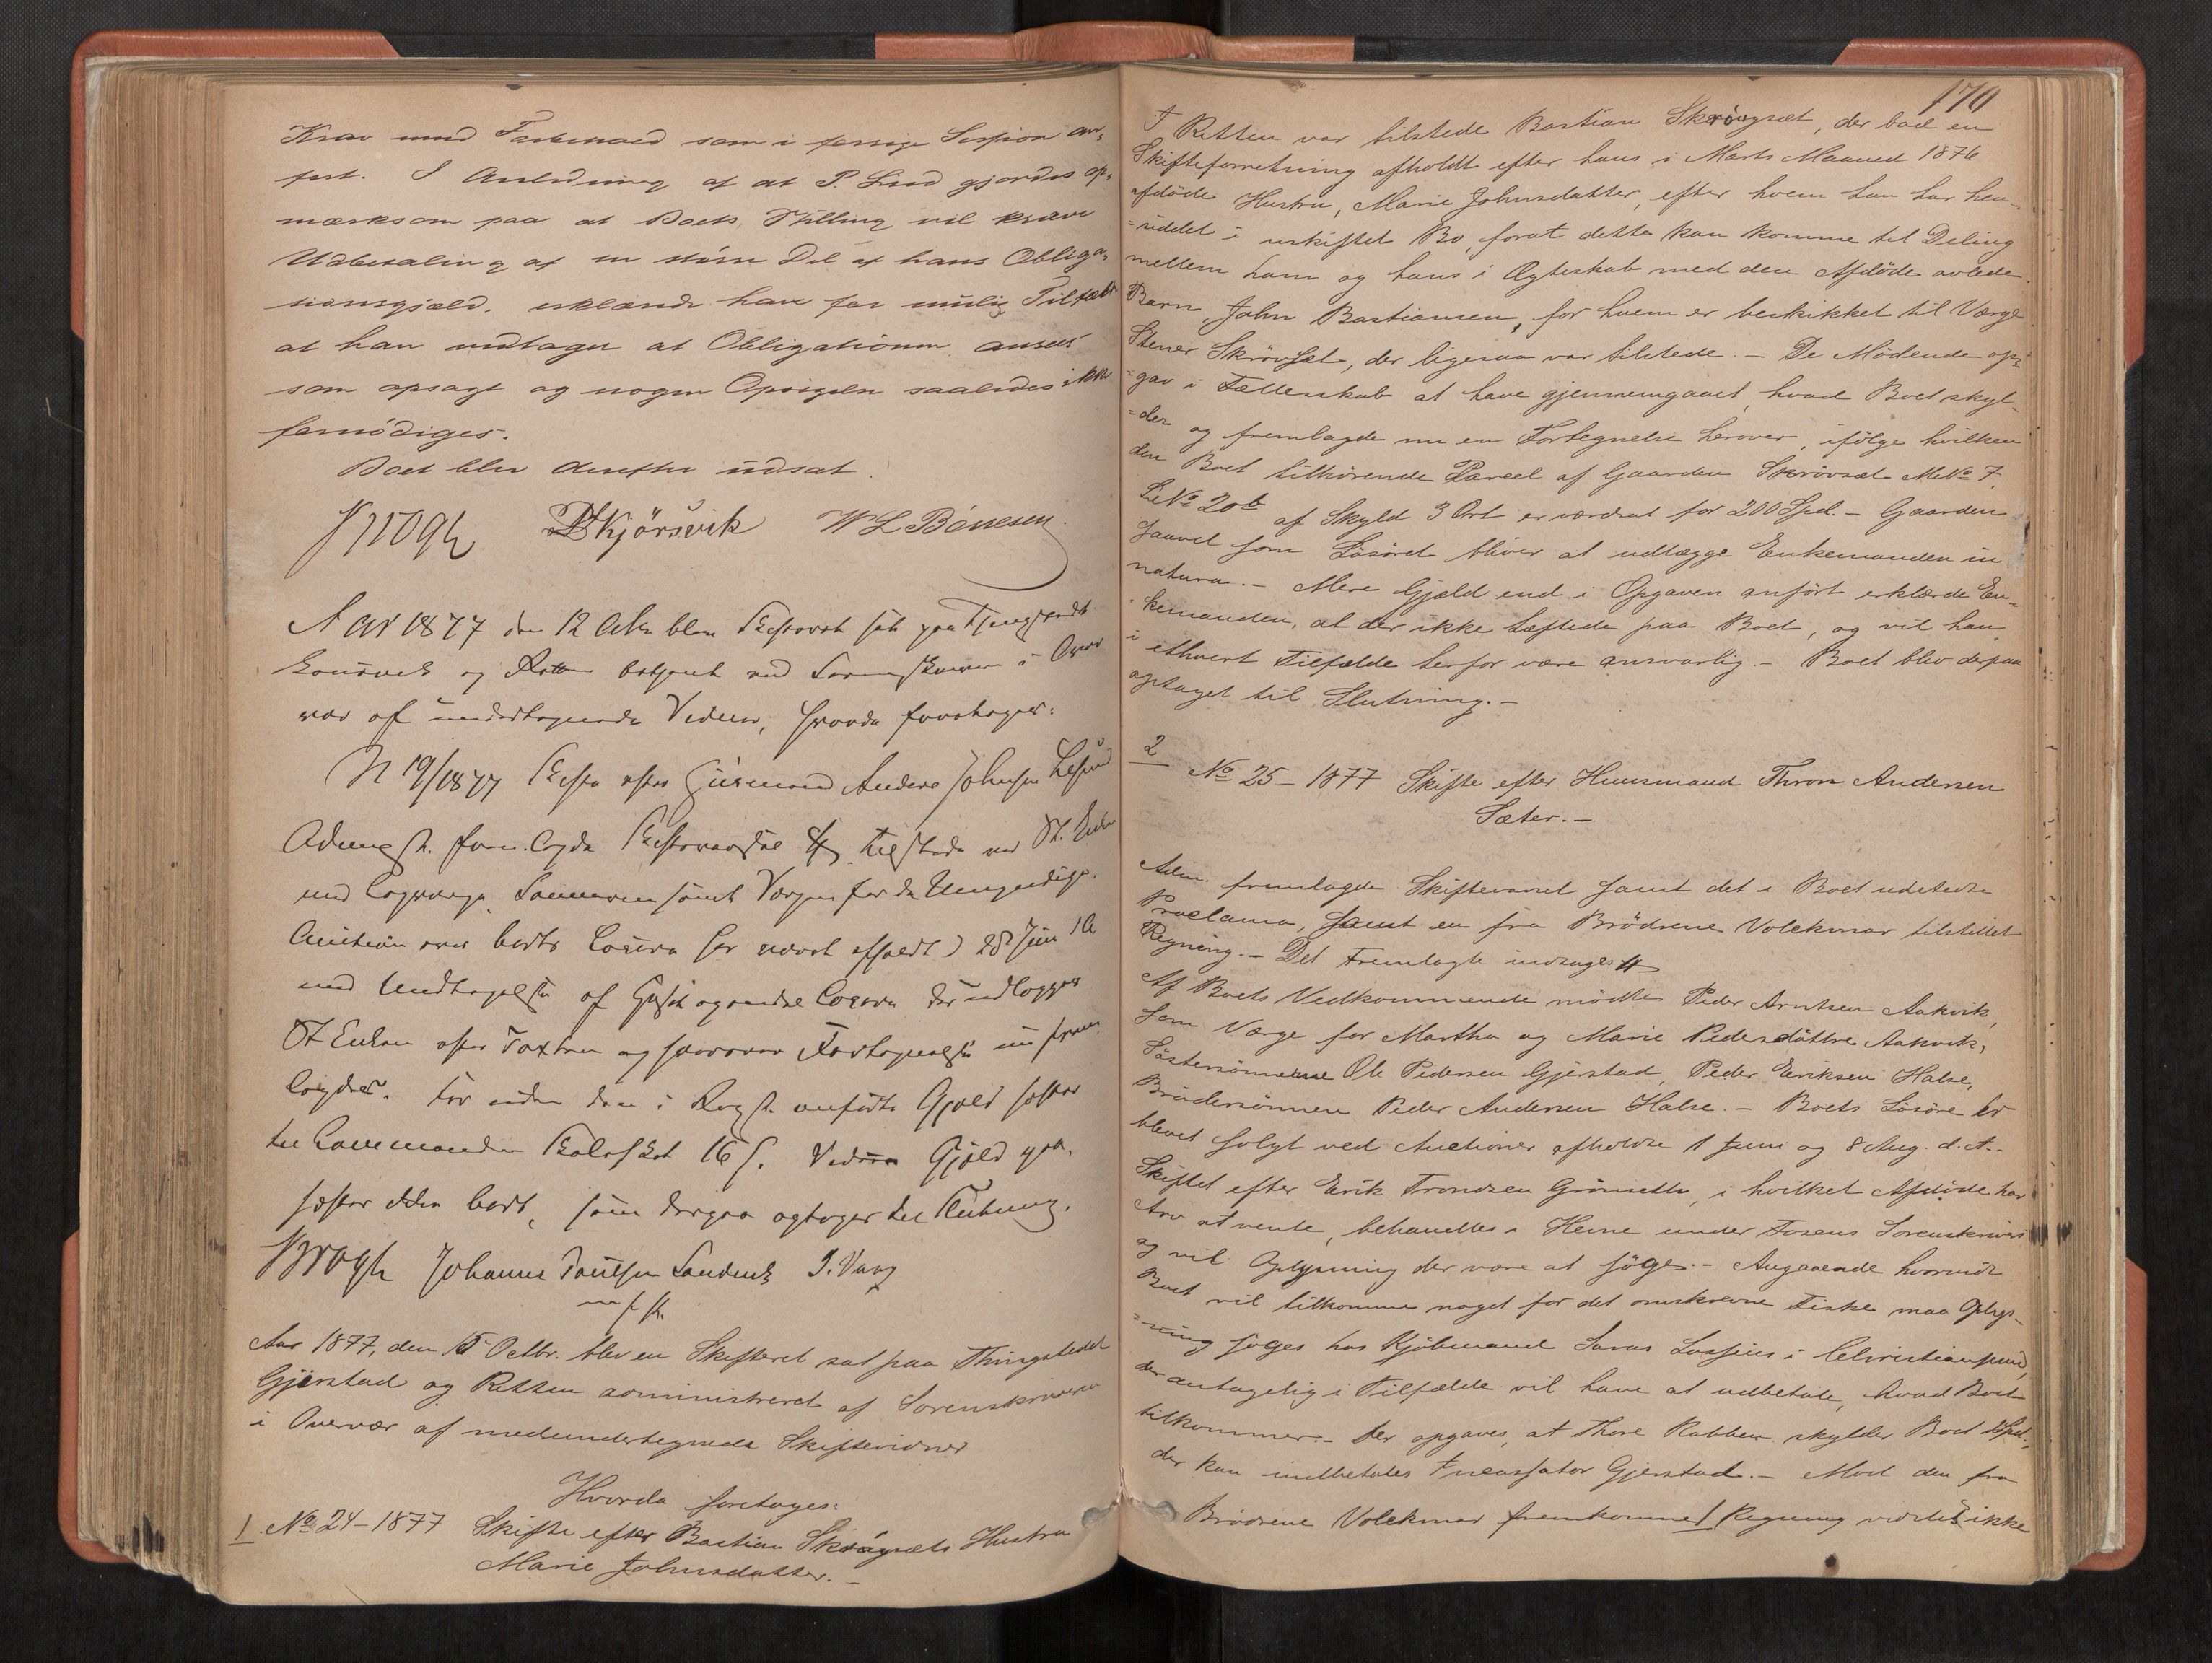 Krav med Forbehold som i forrige Session an-
ført. I Anledning af at P. Lind gjordes op-
mærksom paa at Boets Stilling vil kræve
Udbetaling af en større Del af hans Obliga-
tionsgjæld, erklærede han for mulig Tilfælde
at han modtager at Obligationen ansees
som opsagt og nogen Opsigelse saaledes ikke
fornødiges.
Boet blev derefter udsat.
Krogh Skjørsvik W L Bönesen
Aar 1877 den 12 blev Skifteret sat paa
og Retten betjent ved Sorenskriveren i Over
vær af undertegnede Vidner, hvorda foretoges:
N 19/1877 Skifte efter Huusmand Anders Johnsen
Adm. fremlagde Tilstede var Enken
med Laugværge, Sønnerne samt Værgen for de Umyndige.
Auction over Boets Løsøre har været afholdt 28 Juni
med Undtagelse af og andre Løsøre der udlægges
Enken efter Taxten og hvorover Fortegnelse nu frem
lagdes. For uden den i anførte Gjæld hæfter
til Lensmanden 16 s. Videre Gjæld paa-
hæfter ikke Boet, som derpaa optoges til Slutning.
Krogh Johannes Poulsen Sandvik I. Vaag
m f P.
Aar 1877, den 15 Octbr. blev en Skifteret sat paa Thingstedet
Gjerstad og Retten administreret af Sorenskriveren
i Overvær af medundertegnede Skiftevidner
Hvorda foretoges:
1. No 24–1877 Skifte efter Bastian Skrøvsæts Hustru
Marie Johnsdatter. –
170
I Retten var tilstede Bastian Skrøvsæt, der bad en
Skifteforretning afholdt efter hans i Marts Maaned 1876
afdöde Hustru, Marie Johnsdatter, efter hvem han har hen-
=siddet i uskiftet Bo, forat dette kan komme til Deling
mellem ham og hans i Ægteskab med den Afdöde avlede
Barn, John Bastiansen, for hvem er beskikket til Værge
Stener Skrövsæt, der ligesaa var tilstede. – De Mödende op-
=gav i Fællesskab at have gjennemgaaet, hvad Boet skyl-
=der og fremlagde nu en Fortegnelse herover, ifölge hvilken
den Boet tilhörende Parcel af Gaarden Skrövsæt MNo 7
LNo 20b af Skyld 3 Ort er værdsat for 200 Spd. – Gaarden
saavel som Lösöret bliver at udlægge Enkemanden in
natura. – Mere Gjæld end i Opgaven anfört erklærede En-
kemanden, at der ikke heftede paa Boet, og vil han
i ethvert Tilfælde herfor være ansvarlig. – Boet blev derpaa
optaget til Slutning. –
2
No 25 – 1877 Skifte efter Huusmand Thron Andersen
Sæter. –
Adm. fremlagde Skiftevarsel samt det i Boet udstedte
Proclama, samt en fra Brödrene Volckmar tilstillet
Regning. – Det Fremlagte indtages #
Af Boets Vedkommende mödte Peder Arntsen Aakvik,
som Værge for Martha og Marie Pedersdöttre Aakvik,
Söstersönnerne Ole Pedersen Gjerstad, Peder Eriksen Halse,
Brödersönnen Peder Andersen Halse. – Boets Lösöre er
blevet solgt ved Auctioner afholdte 1 Juni og 8 Aug. d. A. –
Skiftet efter Erik Trondsen Grönsetli, i hvilket Afdöde har
Arv at vente, behandles i Hevne under Fosens Sorenskriveri
og vil Oplysning der være at söges. – Angaaende hvorvidt
Boet vil tilkomme noget for det omskrevne Fiske maa Oplys-
=ning söges hos Kjöbmand Lossius i Christiansund,
der antagelig i Tilfælde vil have at udbetale, hvad Boet
tilkommer. – Der opgaves, at Thore Rabben skylder Boet Spd.,
der kan indbetales Incassator Gjerstad. – Mod den fra
Brödrene Volckmar fremkomne Regning vidstes ikke